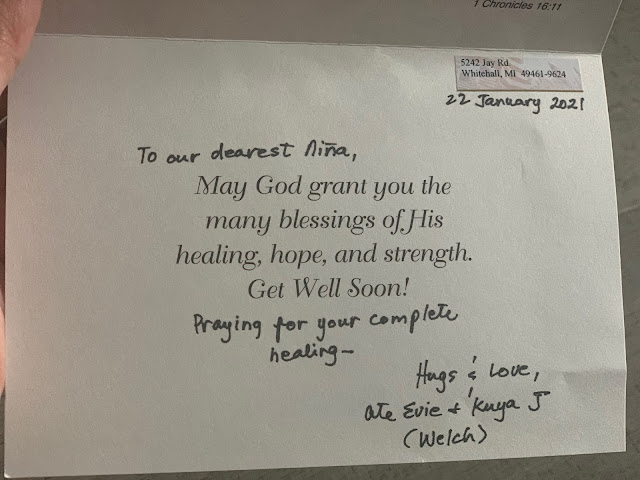 1 Chronicles 16:11
5242 Jay Rd.
Whitehall, MI 49461-9624
22 January 2021
To our dearest Niña,
May God grant you the
many blessings of His
healing, hope, and strength.
Get Well Soon!
Praying for your complete
healing—
Hugs & Love,
Ate Evie & Kuya J
(Welch)